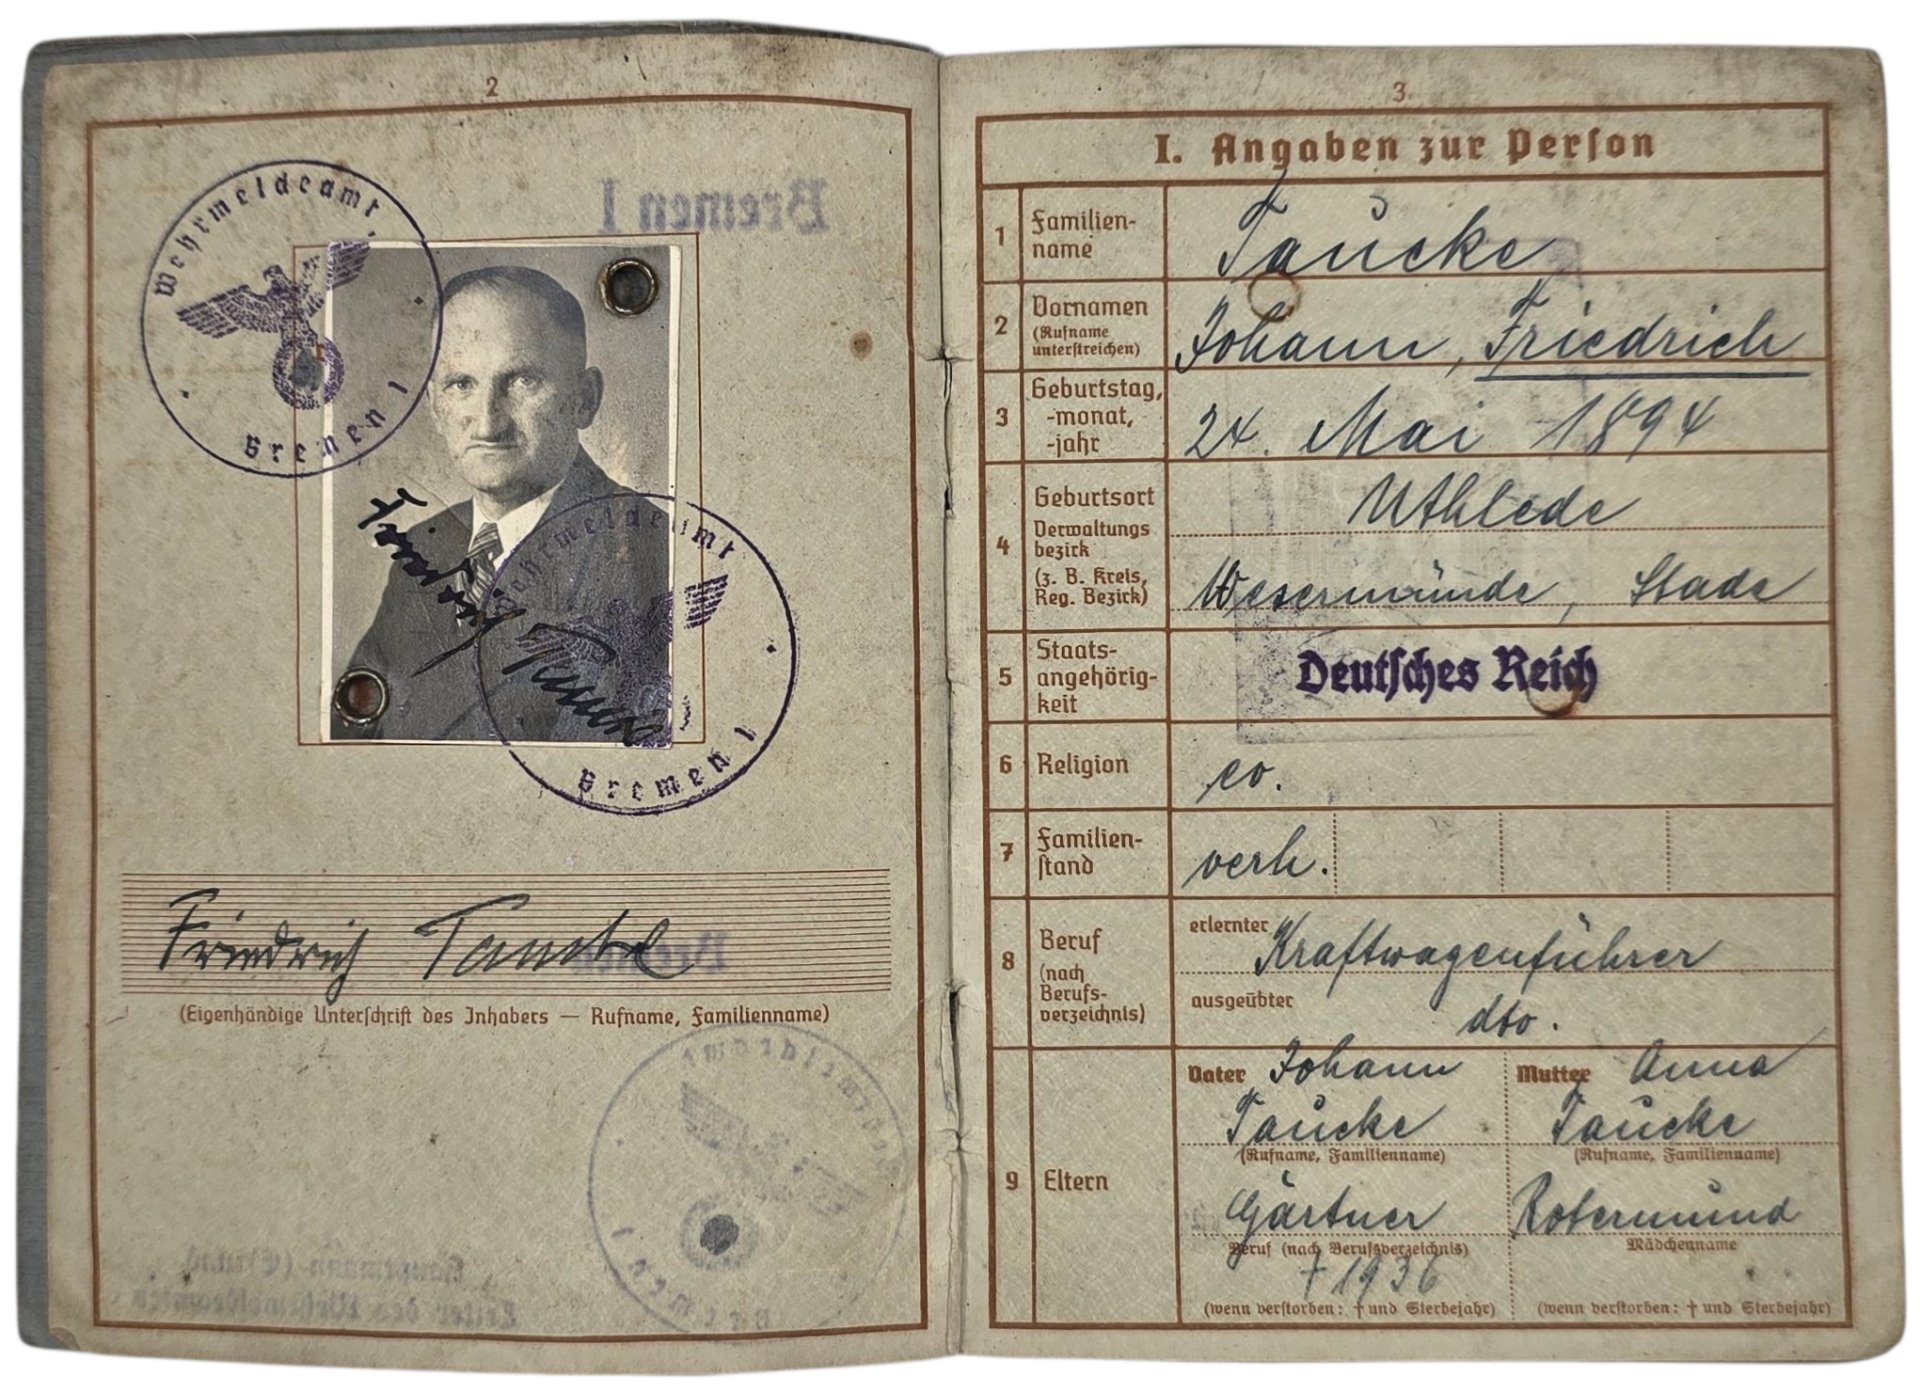 2
Wehrmeldeamt
Bremen 1
Bremen I
Friedrich
Wehrmeldeamt
Bremen 1
Friedrich Taucke
Bremen
(Eigenhändige Unterschrift des Inhabers — Rufname, Familienname)
Wehrmeldeamt
Bremen 1
Hauptmann
Leiter des Wehrmeldeamtes
3
I. Angaben zur Perſon
1 Familien-
name
Taucke
2 Vornamen
(Rufname
unterſtreichen)
Johann, Friedrich
3 Geburtstag,
-monat,
-jahr
24. Mai 1894
4 Geburtsort
Verwaltungs
bezirk
(z. B. Kreis,
Reg. Bezirk)
Uthlede
Wesermünde, Stade
5 Staats-
angehörig-
keit
Deutſches Reich
6 Religion
ev.
7 Familien-
ſtand
verh.
8 Beruf
(nach
Berufs-
verzeichnis)
erlernter Kraftwagenführer
ausgeübter
dto.
9 Eltern
Vater Johann
Taucke
(Rufname, Familienname)
Gärtner
Beruf (nach Berufsverzeichnis)
† 1936
(wenn verſtorben: † und Sterbejahr)
Mutter Anna
Taucke
(Rufname, Familienname)
Rotermund
Mädchenname
(wenn verſtorben: † und Sterbejahr)